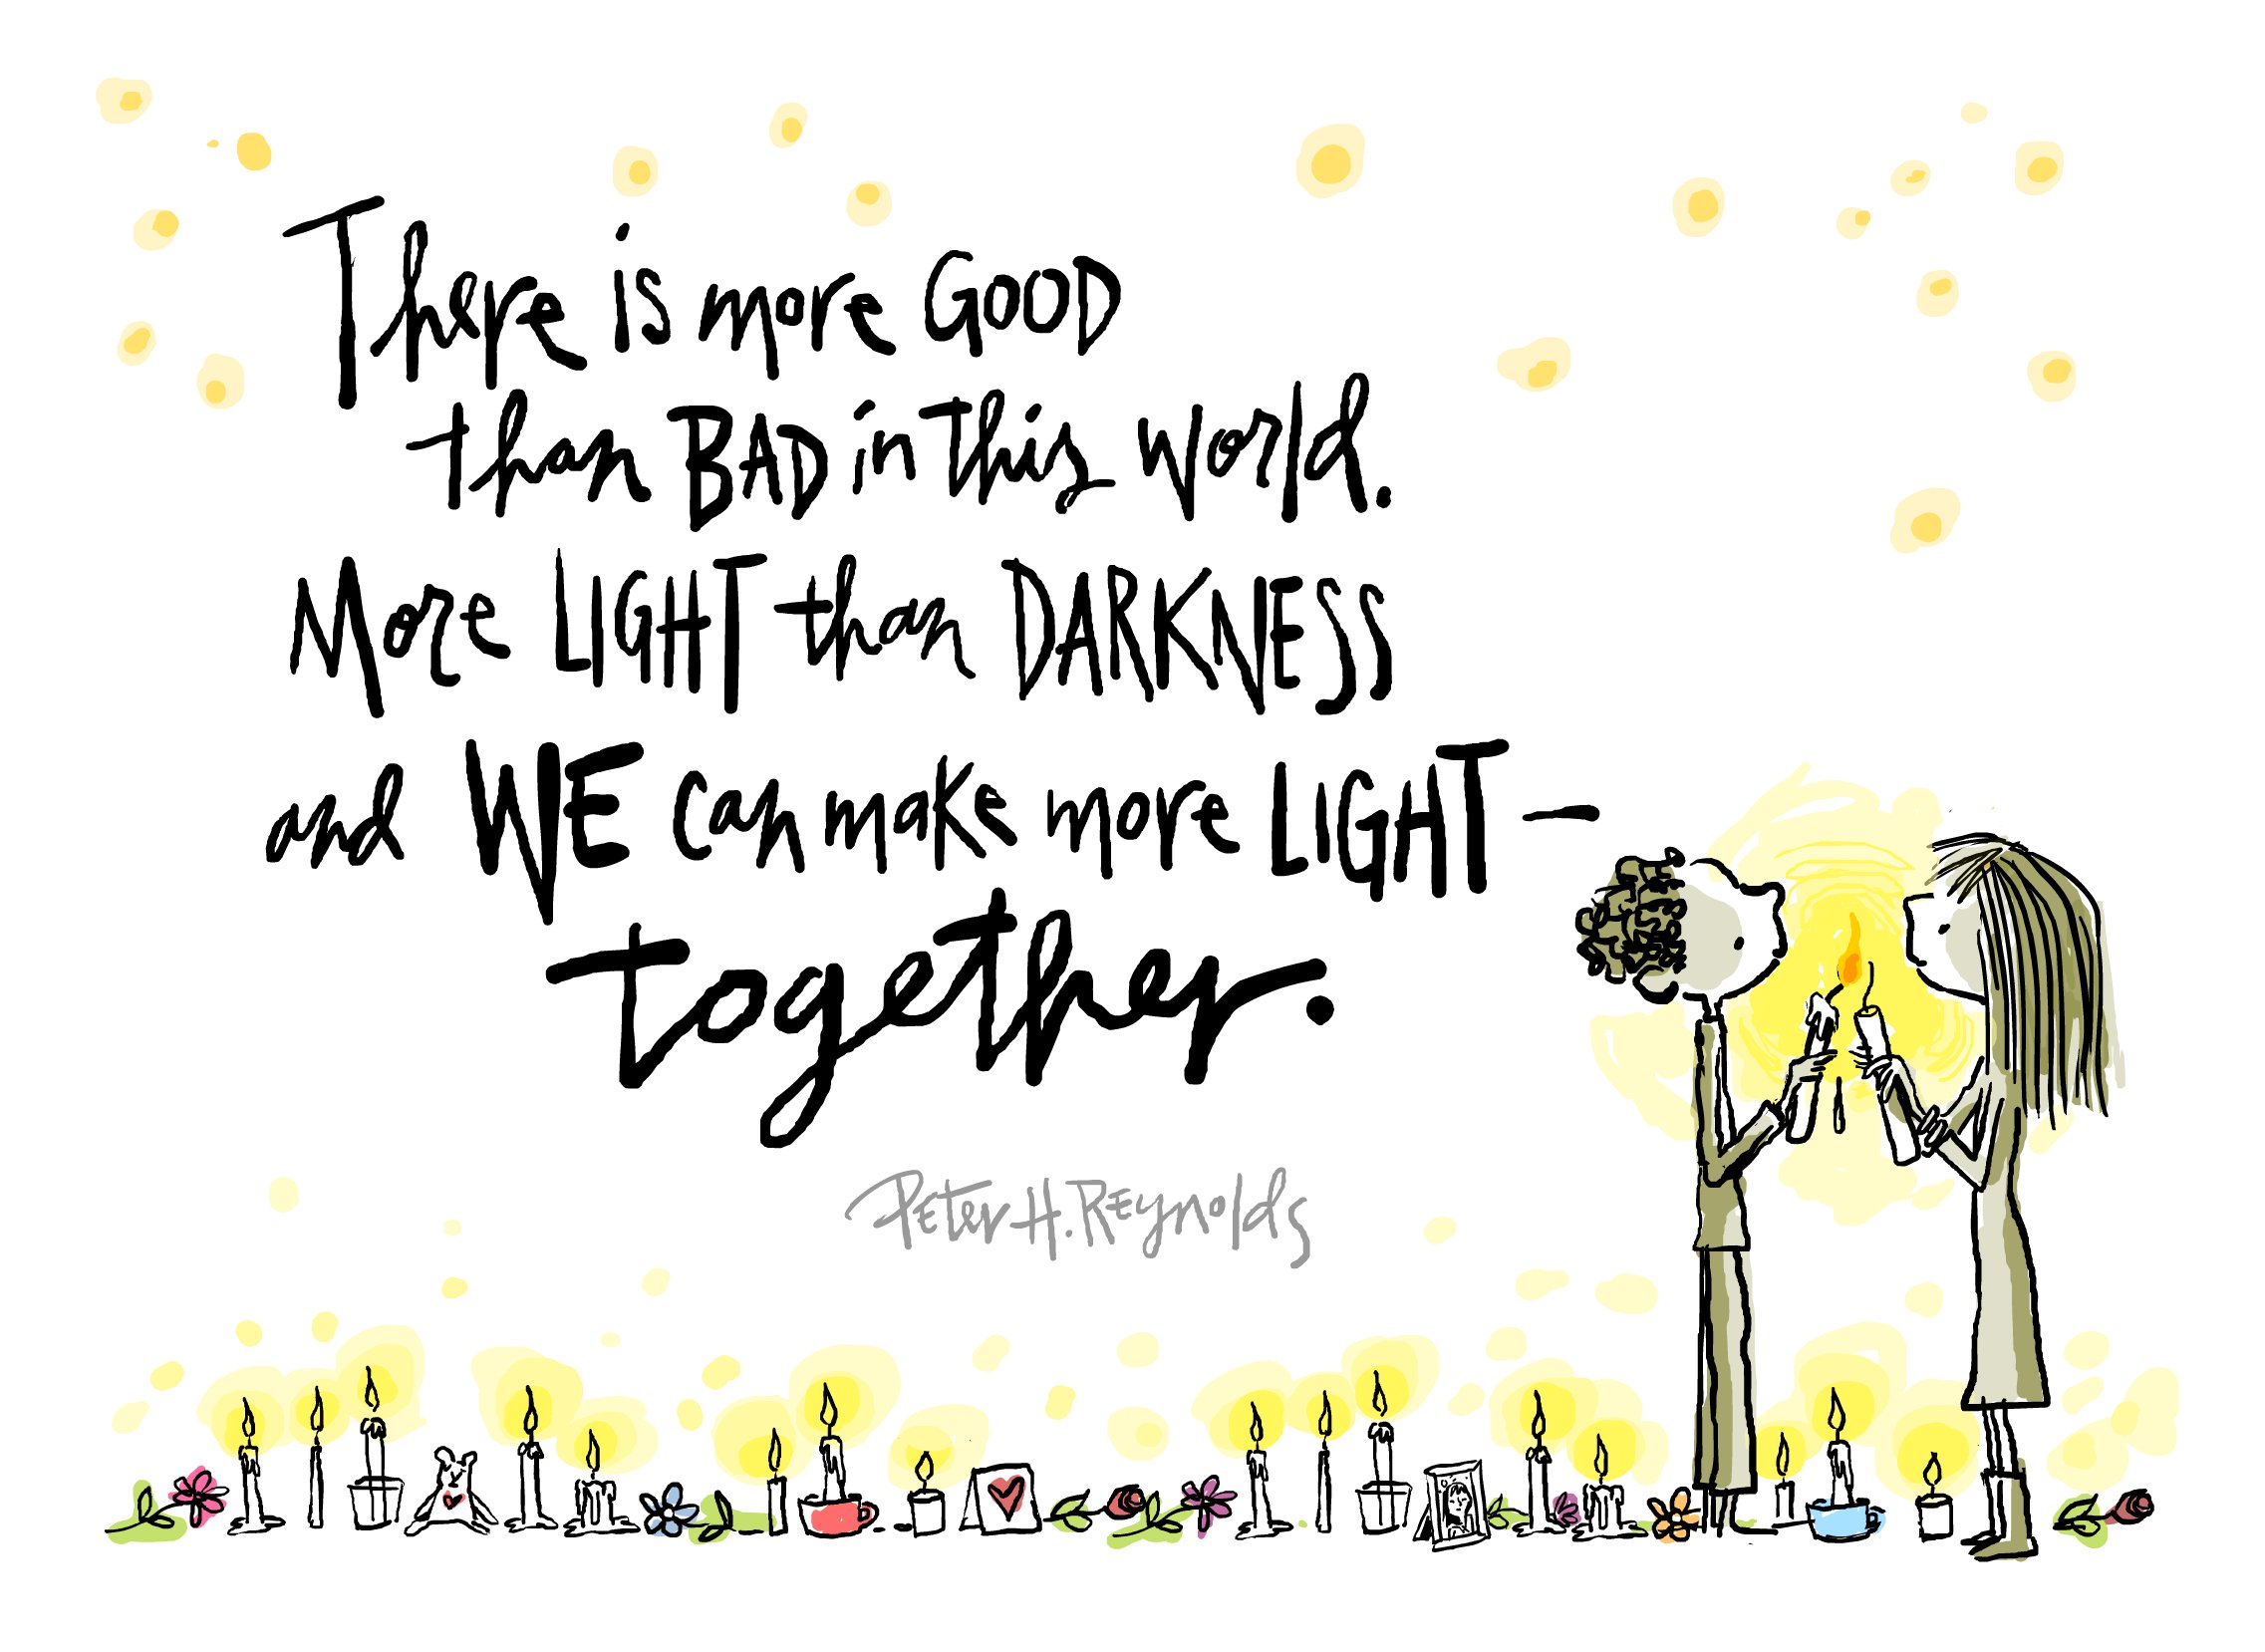 There is more GOOD
than BAD in this world.
More LIGHT than DARKNESS
and WE can make more LIGHT—
together.
Peter H. Reynolds